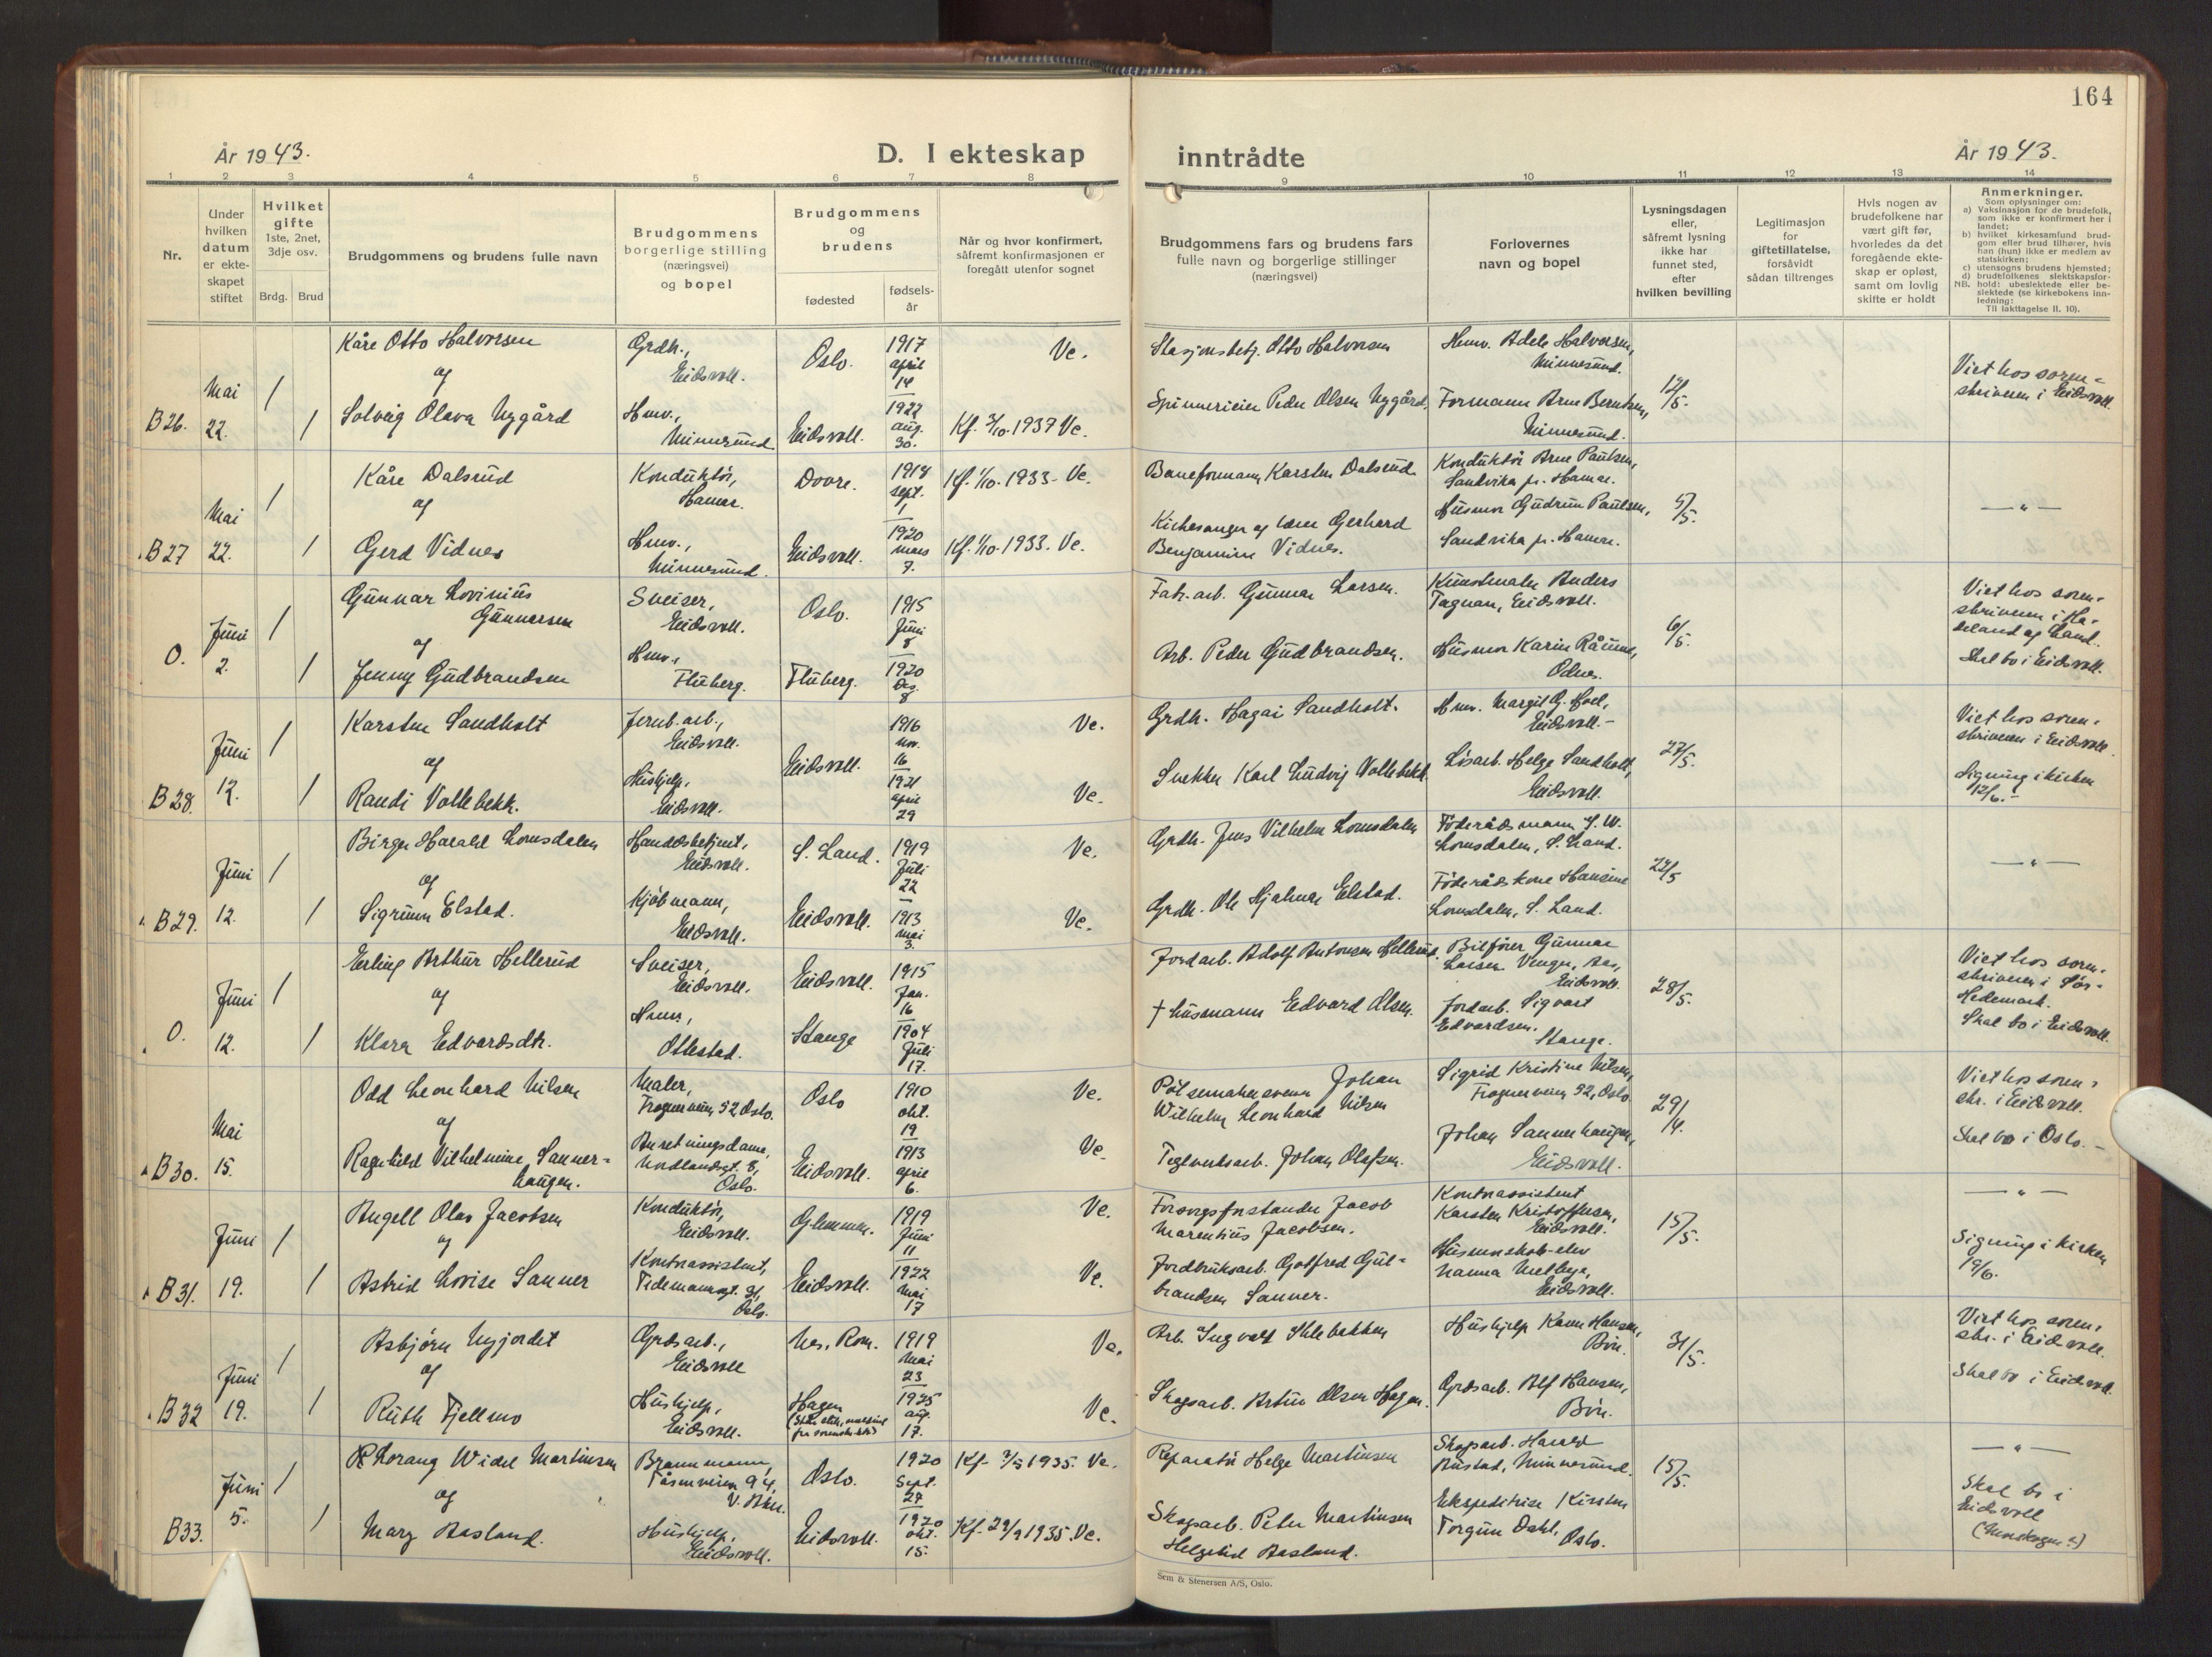 164
År 1943.
D. I ekteskap
inntrådte
År 1943.
1 2 3 4 5 6 7 8 9 10 11 12 13 14
Nr.
Under
hvilken
datum
er ekte-
skapet
stiftet
Hvilket
gifte
1ste, 2net,
3dje osv.
Brdg. Brud
Brudgommens og brudens fulle navn
Brudgommens
borgerlige stilling
(næringsvei)
og bopel
Brudgommens
og
brudens
fødested
fødsels-
år
Når og hvor konfirmert,
såfremt konfirmasjonen er
foregått utenfor sognet
Brudgommens fars og brudens fars
fulle navn og borgerlige stillinger
(næringsvei)
Forlovernes
navn og bopel
Lysningsdagen
eller,
såfremt lysning
ikke har
funnet sted,
efter
hvilken bevilling
Legitimasjon
for
giftetillatelse,
forsåvidt
sådan tiltrenges
Hvis nogen av
brudefolkene har
vært gift før,
hvorledes da det
foregående ekte-
skap er opløst,
samt om lovlig
skifte er holdt
Anmerkninger.
Som oplysninger om:
a) Vaksinasjon for de brudefolk,
som ikke er konfirmert her i
landet;
b) hvilket kirkesamfund brud-
gom eller brud tilhører, hvis
han (hun) ikke er medlem av
statskirken;
c) utensogns brudens hjemsted;
d) brudefolkenes slektskapsfor-
NB. hold: ubeslektede eller be-
slektede (se kirkebokens inn-
ledning:
Til iakttagelse II. 10).
B26.
Mai
22.
1
1
Kåre Otto Halvorsen
og
Solveig Olava Nygård
Grdh.,
Eidsvoll.
Hmv.,
Minnesund
Oslo.
Eidsvoll.
1917
april
14
1922
aug.
30.
Ve.
Kf. 3/10. 1937 Ve.
Stasjonsbetj. Otto Halvorsen
Spinnerieier Peder Olsen Nygård.
Hmv. Adele Halvorsen,
Minnesund.
Formann Arne Berntsen,
Minnesund.
12/5.
Viet hos soren-
skriveren i Eidsvoll.
B27
Mai
22.
1
1
Kåre Dalsrud
og
Gerd Vidnes
Konduktør,
Hamar.
Hmv.,
Minnesund.
Dovre.
Eidsvoll.
1918
sept.
1
1920
mars
7.
Kf. 1/10. 1933 - Ve.
Kf. 1/10. 1933. Ve.
Baneformann Karsten Dalsrud
Kirkesanger og lærer Gerhard
Benjamin Vidnes.
Konduktør Arne Paulsen,
Sandvika pr. Hamar.
Husmor Gudrun Paulsen,
Sandvika pr. Hamar.
5/5.
— " —
0.
Juni
2.
1
1
Gunnar Lovinius
Gunnersen
og
Jenny Gudbrandsen
Sveiser,
Eidsvoll.
Hmv.,
Fluberg.
Oslo.
Fluberg.
1915
Juni
8
1920
Des.
8
Fabr. arb. Gunnar Larsen.
Arb. Peder Gudbrandsen.
Kunstmaler Anders
Tagnan, Eidsvoll.
Husmor Karin Råum,
Odnes.
6/5.
Viet hos soren-
skriveren i Ha-
deland og Land.
Skal bo i Eidsvoll.
B28.
Juni
12.
1
1
Karsten Sandholt
og
Randi Vollebekk.
Jernb. arb.,
Eidsvoll.
Hushjelp,
Eidsvoll.
Eidsvoll.
1916
nov.
16
1921
april
29
Ve.
Ve.
Grdh. Hagai Sandholt.
Snekker Karl Ludvig Vollebekk.
Hmv. Margit G. Hoel,
Eidsvoll. -
Løsarb. Helge Sandholt,
Eidsvoll.
27/5.
Viet hos soren-
skriveren i Eidsvoll.
Signing i kirken
12/6. -
B29.
Juni
12.
1
1
Birger Harald Lomsdalen
og
Sigrunn Elstad.
Handelsbetjent,
Eidsvoll.
Kjøbmann,
Eidsvoll.
S. Land.
Eidsvoll.
1919
Juli
22
1913
mai
3.
Ve.
Ve.
Grdh. Jens Vilhelm Lomsdalen
Grdh. Ole Hjalmar Elstad.
Føderådsmann J. W.
Lomsdalen, S. Land.
Føderådskone Hansine
Lomsdalen, S. Land.
22/5
— " —
0.
Juni
12.
1
1
Erling Arthur Hellerud
og
Klara Edvardsdtr.
Sveiser,
Eidsvoll.
Hmv.,
Ottestad.
Eidsvoll.
Stange
1915
Jan.
16
1904
Juli
17.
Jordarb. Adolf Antonsen Hellerud.
† husmann Edvard Olsen.
Bilfører Gunnar
Larsen Venger, Aas,
Eidsvoll.
Jordarb. Sigvart
Edvardsen.
Stange.
28/5.
Viet hos soren-
skriveren i Sør-
Hedemark.
Skal bo i Eidsvoll.
B30.
Mai
15.
Odd Leonhard Nilsen
og
Ragnhild Vilhelmine Sanner-
haugen.
Maler,
Frognerveien 52 Oslo.
Anretningsdame,
8,
Oslo.
Oslo
Eidsvoll.
1910
okt.
19
1913
april
6.
Ve.
Ve.
Pølsemakersvenn Johan
Wilhelm Leonhard Nilsen
Teglverksarb. Johan Olafsen.
Sigrid Kristine Nilsen,
Frognerveien 52, Oslo
Johan Sannerhaugen,
Eidsvoll.
29/4.
Viet hos soren-
skr. i Eidsvoll.
Skal bo i Oslo. -
B31.
Juni
19.
1
1
Angell Olav Jacobsen
og
Astrid Lovise Sanner
Konduktør,
Eidsvoll.
Kontorassistent,
Tidemannsgt. 31,
Oslo.
Glemmen.
Eidsvoll.
1919
Juni
11
1922
Mai
17
Ve.
Ve.
Forsorgsforstander Jacob
Marentius Jacobsen.
Jordbruksarb. Gotfred Gul-
brandsen Sanner.
Kontorassistent
Karsten Kristoffersen,
Eidsvoll.
Husmorskole-elev
Nanna Melbye,
Eidsvoll.
15/5.
— " —
Signing i kirken
19/6.
B32
Juni
19.
1
1
Asbjørn Nyjordet
og
Ruth Fjellmo
Grdsarb.,
Eidsvoll
Hushjelp,
Eidsvoll.
Nes, Rom.
Hagen
1919
Mai
23
1925
aug.
17.
Ve.
Ve.
Arb. Ingvald Shlebakken
Skogsarb. Artur Olsen Hagen.
Hushjelp Karen Hansen,
Bøn.
Grdsarb. Alf Hansen,
Bøn.
31/5.
Viet hos soren-
skr. i Eidsvoll.
Skal bo i Eidsvoll.
B33.
Juni
5.
1
1
Thorang Widel Martinsen
og
Mary Aasland.
Brannmann,
Tåsenveien 94,
V. Aker.
Hushjelp,
Eidsvoll.
Oslo.
Eidsvoll.
1920
Sept.
27
1920
okt.
15.
Kf. 3/5 1935. Ve.
Kf. 29/9 1935. Ve.
Reparatør Helge Martinsen
Skogsarb. Peter Martinsen
Helgebøl Aasland.
Skogsarb. Harald
Rustad, Minnesund.
Ekspeditrise Kirsten
Torgun Dahl,
Oslo.
15/5.
— " —
Skal bo i
Eidsvoll
Sem & Stenersen A/S, Oslo.